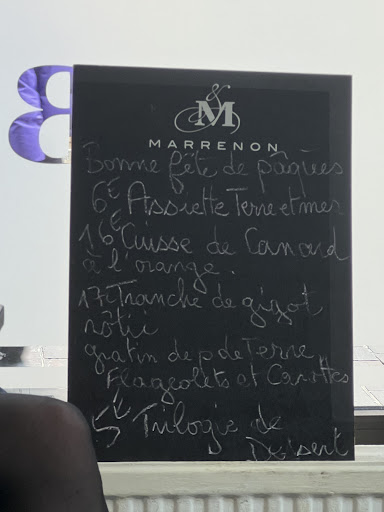 & M
MARRENON
Bonne fête de pâques
6€ Assiette Terre et mer
16€ Cuisse de Canard
à l'orange.
17€ Tranche de gigot
rôtie
gratin de p de Terre
Flageolets et Carottes
5€ Trilogie de
Dessert